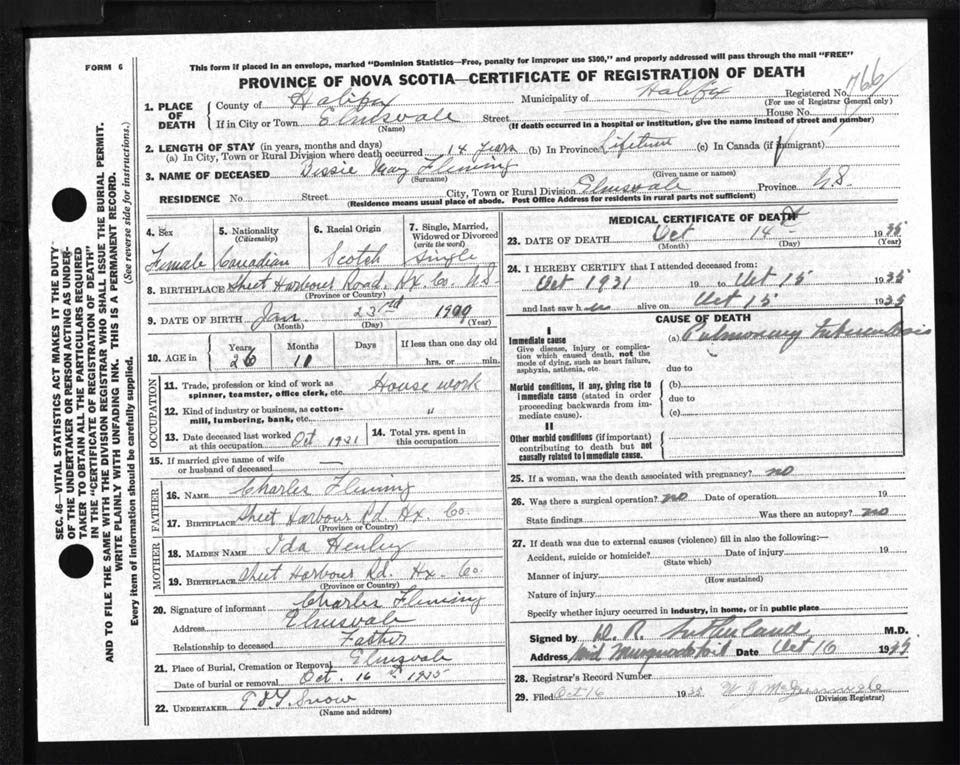 FORM 6
This form if placed in an envelope, marked "Dominion Statistics—Free, penalty for improper use $300," and properly addressed will pass through the mail "FREE"
PROVINCE OF NOVA SCOTIA—CERTIFICATE OF REGISTRATION OF DEATH
SEC. 46—VITAL STATISTICS ACT MAKES IT THE DUTY
OF THE UNDERTAKER OR PERSON ACTING AS UNDER-
TAKER TO OBTAIN ALL THE PARTICULARS REQUIRED
IN THE "CERTIFICATE OF REGISTRATION OF DEATH"
AND TO FILE THE SAME WITH THE DIVISION REGISTRAR WHO SHALL ISSUE THE BURIAL PERMIT.
WRITE PLAINLY WITH UNFADING INK. THIS IS A PERMANENT RECORD.
Every item of information should be carefully supplied. (See reverse side for instructions.)
1. PLACE OF DEATH
County of Halifax Municipality of Halifax Registered No. 766
(For use of Registrar General only)
If in City or Town Elmsvale Street House No.
(Name) (If death occurred in a hospital or institution, give the name instead of street and number)
2. LENGTH OF STAY (in years, months and days)
(a) In City, Town or Rural Division where death occurred 14 years (b) In Province Lifetime (c) In Canada (if immigrant)
3. NAME OF DECEASED Bessie May Fleming
(Surname) (Given name or names)
RESIDENCE No. Street City, Town or Rural Division Elmsvale Province N.S.
(Residence means usual place of abode. Post Office Address for residents in rural parts not sufficient)
4. Sex Female
5. Nationality (Citizenship) Canadian
6. Racial Origin Scotch
7. Single, Married, Widowed or Divorced (write the word) Single
8. BIRTHPLACE Sheet Harbour Road, Hx. Co. N.S.
(Province or Country)
9. DATE OF BIRTH Jan. 23rd 1909
(Month) (Day) (Year)
10. AGE in Years 26 Months 10 Days If less than one day old hrs. or min.
OCCUPATION
11. Trade, profession or kind of work as spinner, teamster, office clerk, etc. House work
12. Kind of industry or business, as cotton-mill, lumbering, bank, etc. "
13. Date deceased last worked at this occupation Oct 1931
14. Total yrs. spent in this occupation
15. If married give name of wife or husband of deceased —
FATHER
16. NAME Charles Fleming
17. BIRTHPLACE Sheet Harbour Rd. Hx. Co.
(Province or Country)
MOTHER
18. MAIDEN NAME Ida Henley
19. BIRTHPLACE Sheet Harbour Rd. Hx. Co.
(Province or Country)
20. Signature of informant Charles Fleming
Address Elmsvale
Relationship to deceased Father
21. Place of Burial, Cremation or Removal Elmsvale
Date of burial or removal Oct. 16th 1935
22. UNDERTAKER Snow
(Name and address)
MEDICAL CERTIFICATE OF DEATH
23. DATE OF DEATH Oct 14th 1935
(Month) (Day) (Year)
24. I HEREBY CERTIFY that I attended deceased from:
Oct 1931 19 to Oct 15 1935
and last saw her alive on Oct 15 1935
CAUSE OF DEATH
I
Immediate cause
Give disease, injury or complication which caused death, not the mode of dying, such as heart failure, asphyxia, asthenia, etc.
(a) Pulmonary tuberculosis
due to
Morbid conditions, if any, giving rise to immediate cause (stated in order proceeding backwards from immediate cause).
(b)
due to
(c)
II
Other morbid conditions (if important) contributing to death but not causally related to immediate cause.
25. If a woman, was the death associated with pregnancy? no
26. Was there a surgical operation? no Date of operation 19
State findings Was there an autopsy? no
27. If death was due to external causes (violence) fill in also the following:—
Accident, suicide or homicide? Date of injury 19
(State which)
Manner of injury
(How sustained)
Nature of injury
Specify whether injury occurred in industry, in home, or in public place
Signed by D. R. Sutherland, M.D.
Address Mid Musquodoboit Date Oct 16 1935
28. Registrar's Record Number
29. Filed Oct 16 1935
(Division Registrar)